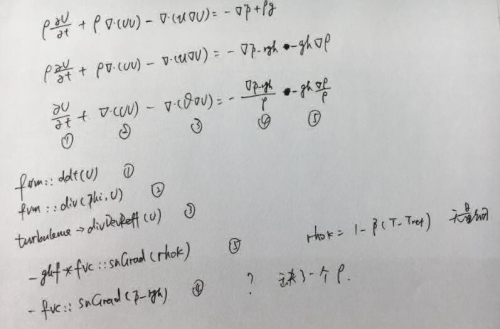 ρ ∂U/∂t + ρ ∇·(UU) − ∇·(μ∇U) = −∇p + ρg
ρ ∂U/∂t + ρ∇·(UU) − ∇·(μ∇U) = −∇p_rgh − gh∇ρ
∂U/∂t + ∇·(UU) − ∇·(ϑ∇U) = − ∇p_rgh/ρ − gh ∇ρ/ρ
① ② ③ ④ ⑤
fvm::ddt(U) ①
fvm::div(phi,U) ②
turbulence→divDevReff(U) ③
−ghf*fvc::snGrad(rhok) ⑤ rhok = 1−β(T−Tref)
−fvc::snGrad(p_rgh) ④ ? 一个ρ.